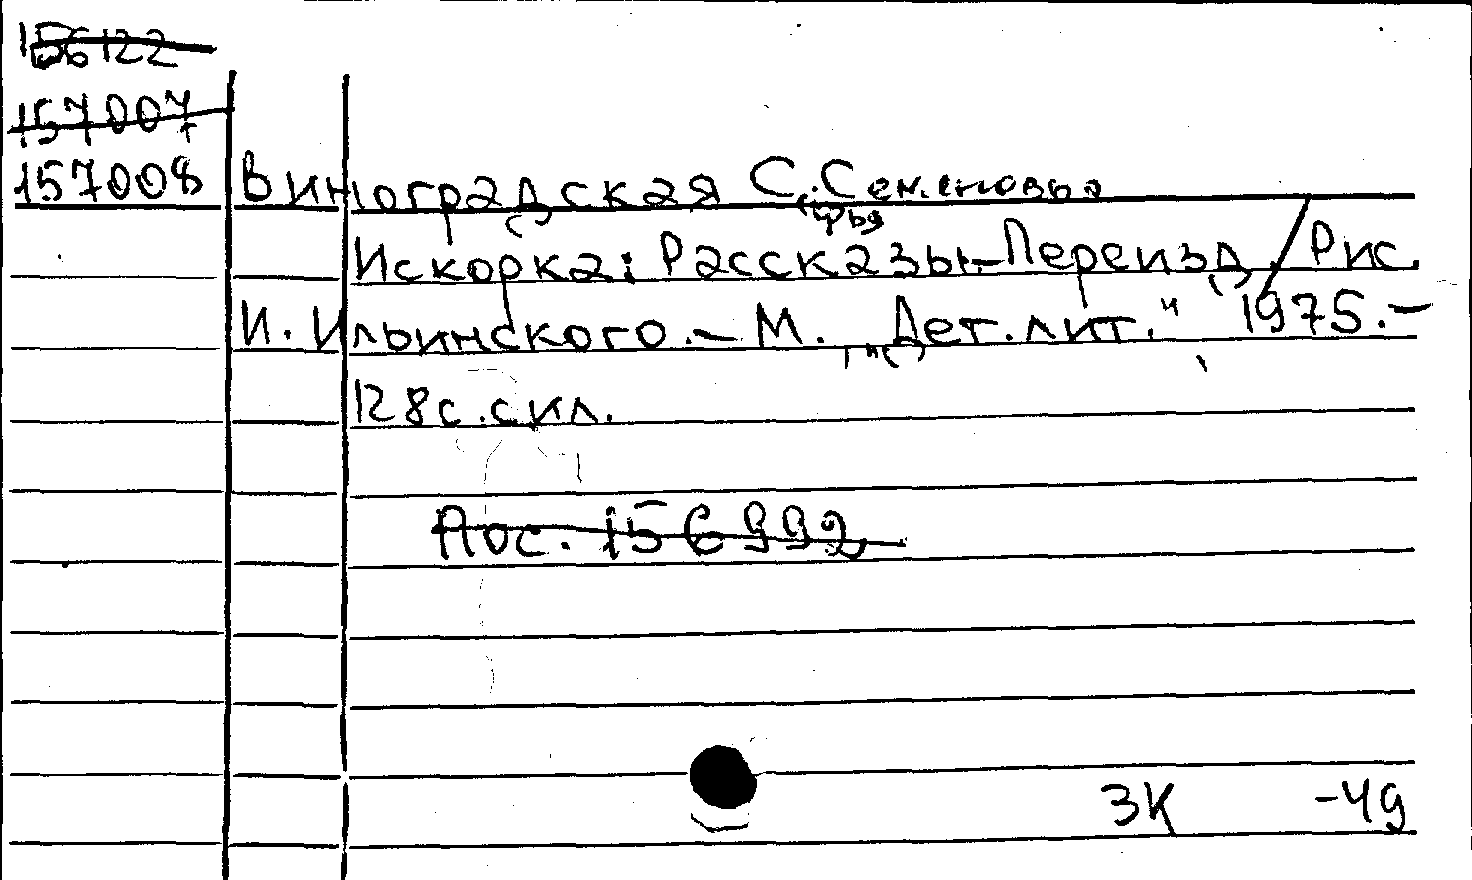 156122
157007
157008 Виноградская С. Семеновья
Искорка: Рассказы.-Переизд./Рис.
И. Ильинского.- М. „Дет. лит." 1975.-
128с. с ил.
Пос. 156992
3К -49